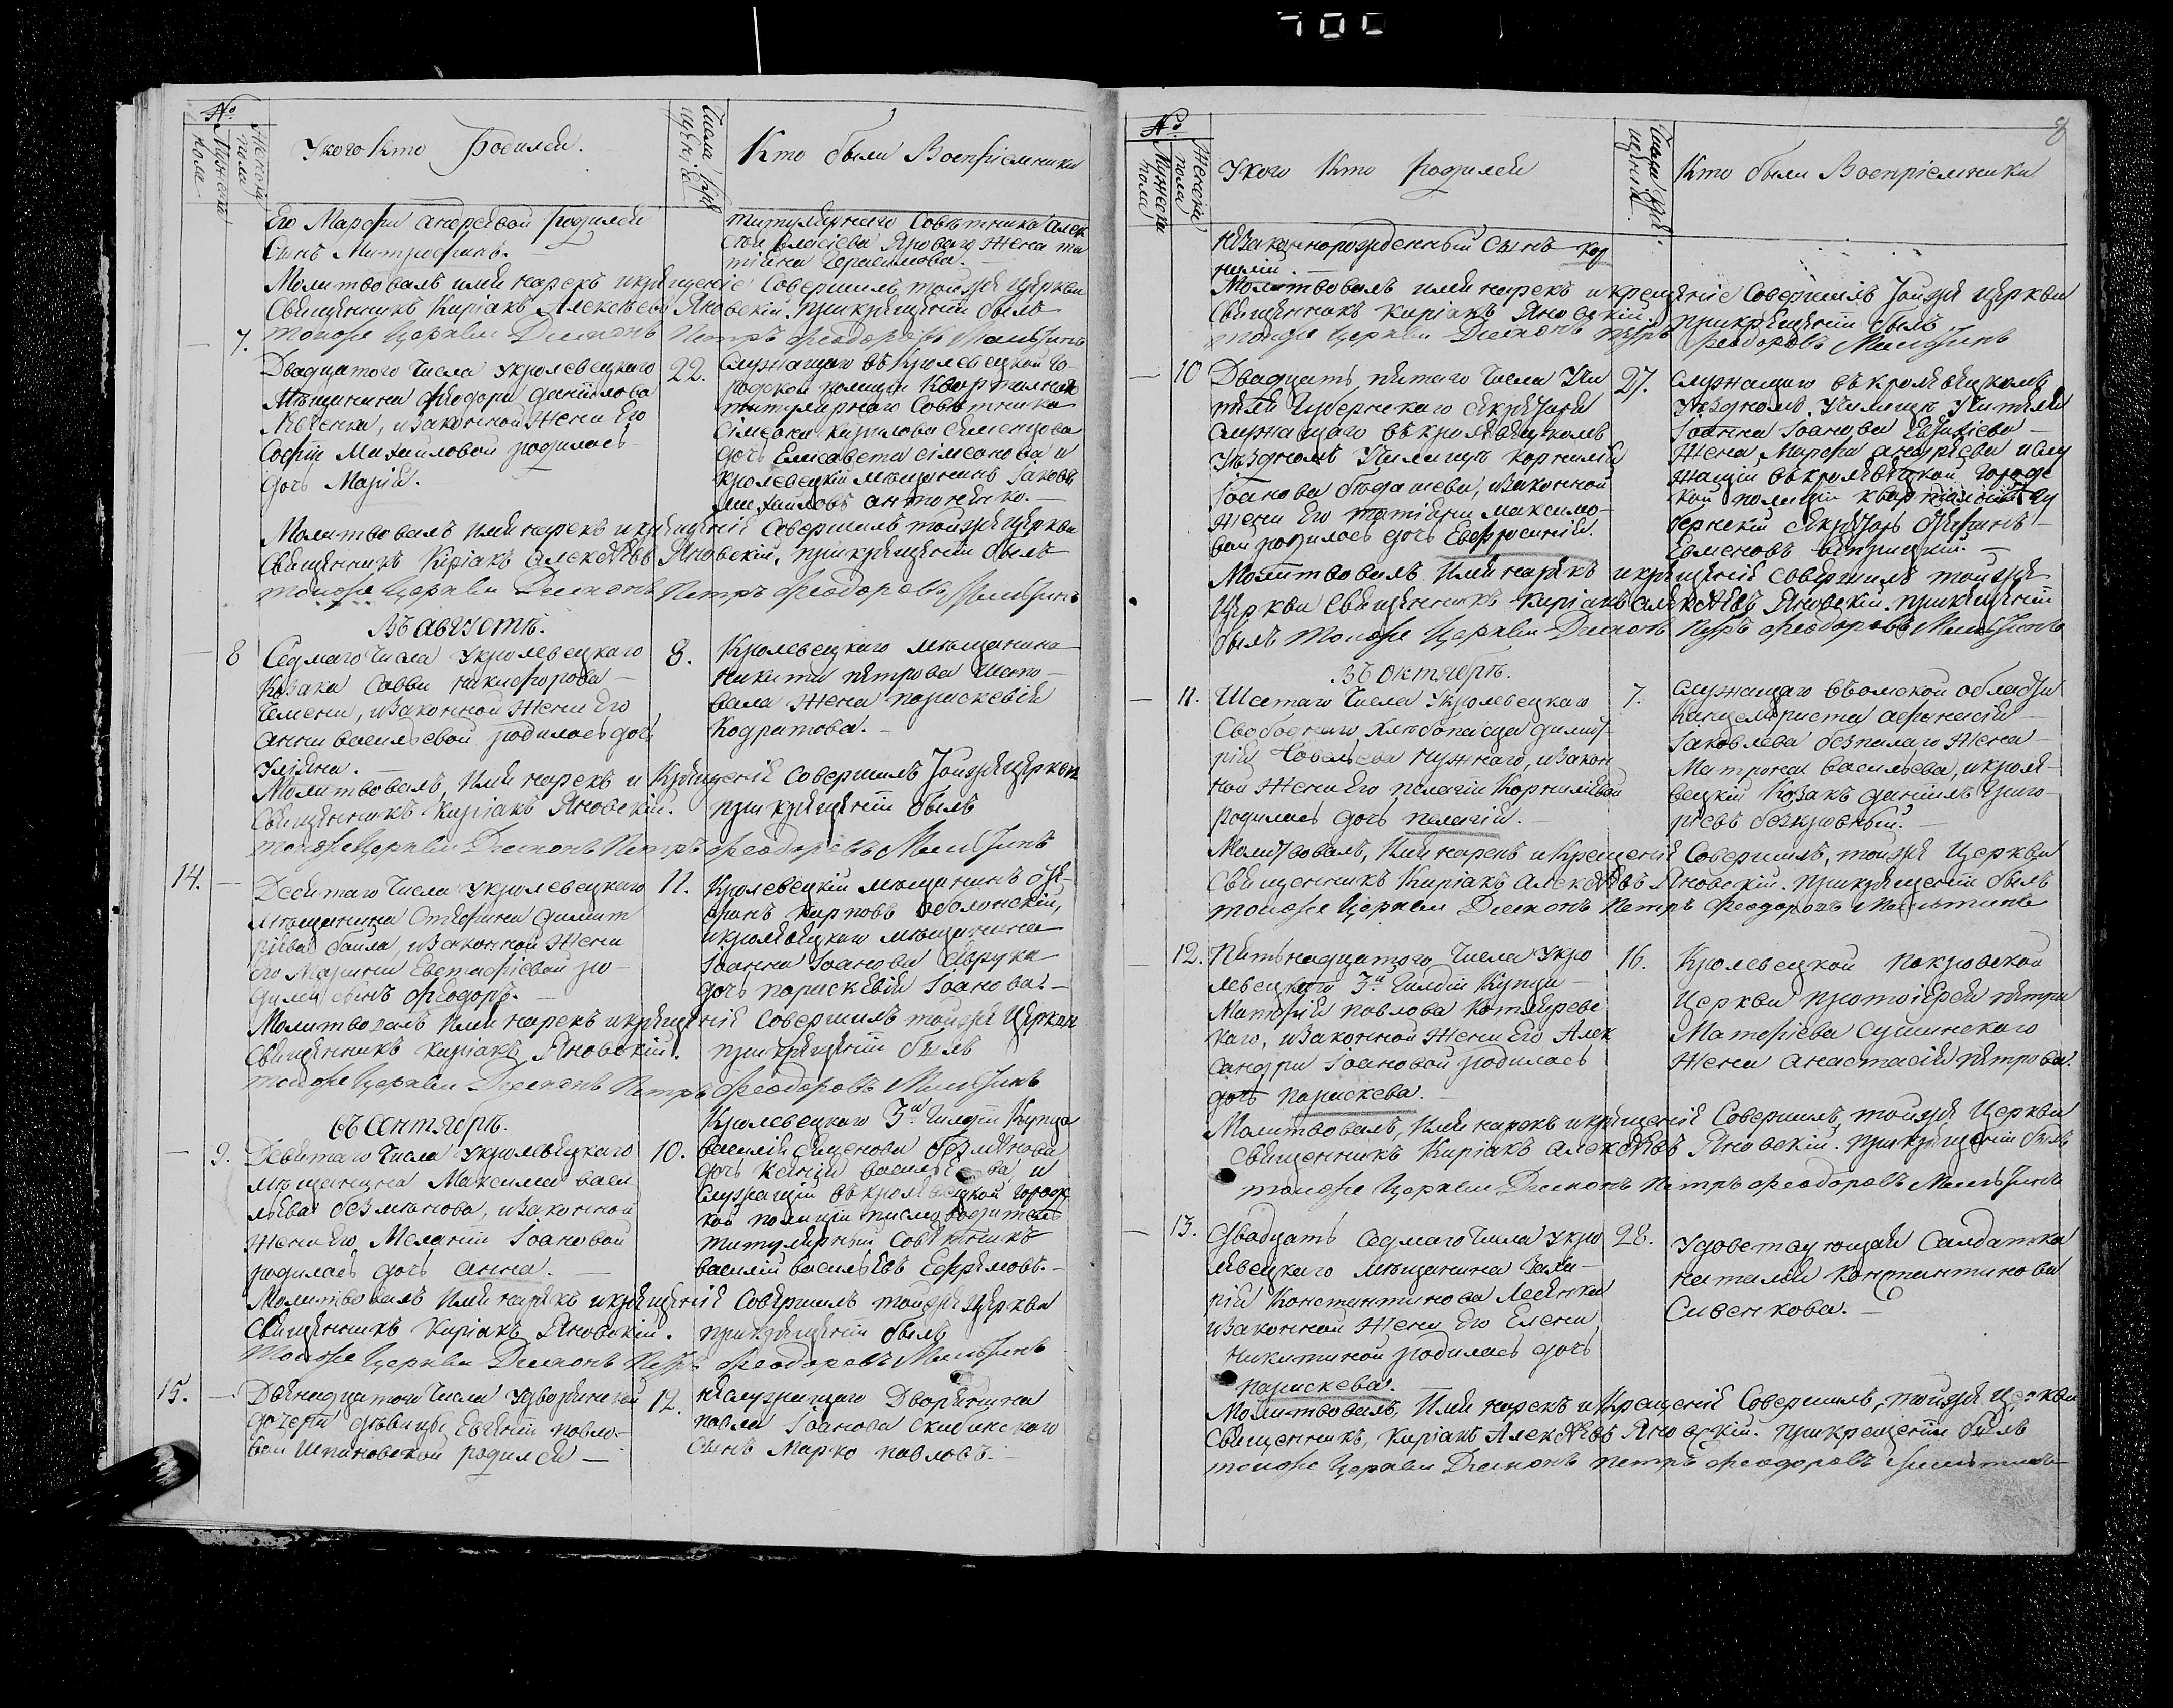 №
Мужеска пола
Женска пола
У кого кто родился.
Числа крещенія
Кто были Воспріемники
Его Марфы Андреевой родился
Сынъ Митрофанъ.
титулярнаго Совѣтника Алек
сѣя Власіева Яроваго жена та
тіяна Герасимова.
Молитвовалъ имя нарекъ и крещеніе Совершилъ тойжя Церкви
Священникъ Киріакъ Алексѣевъ Яновскій. При крещеніи былъ
тоиже Церкви Діаконъ Петръ Феодоровъ Мальтинъ
7.
Двадцатого Числа у кролевецкаго
Мѣщанина Феодора Даніилова
Левченка, и законной жены Его
Софіи Михайловой родилась
дочь Марія.
22.
Служащаго въ Кролевецкой Го
родской полиціи Квартальнаго
титулярнаго Совѣтника
Сімеона Кирилова Семенцова
дочь Елисавета Сімеонова и
кролевецкій мѣщанинъ Іаковъ
михаиловъ антоненко.
Молитвовалъ имя нарекъ и крещеніе Совершилъ тойжя Церкви
Священникъ Киріакъ Алексѣевъ Яновскій, при крещеніи былъ
тоиже Церкви Діаконъ Петръ Феодоровъ Мальтинъ
Въ августѣ.
8
Седмаго Числа у кролевецкаго
Козака Саввы Никифорова
Чемены, и законной жены Его
Анны Васильевой родилась дочь
Уліяна.
8.
Кролевецкаго мѣщанина
Никиты Петрова Шапо
вала жена параскевія
Кодратова.
Молитвовалъ, имя нарекъ и Крещеніе Совершилъ тойжя Церкви
Священникъ Киріакъ Яновскій. при крещеніи былъ
тоиже Церкви Діаконъ Петръ Феодоровъ Мальтинъ
14.
Десятаго Числа у кролевецкаго
мѣщанина Стефана Димит
ріева Баила, и законной жены
Его Марины Евстафіевой ро
дился сынъ Феодоръ.
11.
Кролевецкій мѣщанинъ Сте
фанъ Карповъ Оболонскій,
и кролевецкаго мѣщанина
Іоанна Іоанова Аврука
дочь параскевія Іоанова.
Молитвовалъ имя нарекъ и крещеніе Совершилъ тойжя Церкви
Священникъ Киріакъ Яновскій. при крещеніи былъ
тоиже Церкви Діаконъ Петръ Феодоровъ Мальтинъ
въ сентябрѣ.
9.
Девятаго Числа у кролевецкаго
мѣщанина Максима Васи
льева Безмѣнова, и законной
жены Его Меланіи Іоановой
родилась дочь анна.
10.
Кролевецкаго 3й Гилдіи Купца
Василія Сименова Безмѣнова
дочь Ксенія Васильева, и
Служащій въ кролевецкой городс
кой полиціи писмоводитель
титулярный Совѣтникъ
Василій Васильевъ Ефремовъ.
Молитвовалъ имя нарекъ и крещеніе Совершилъ тойжя Церкви
Священникъ Киріакъ Яновскій. при крещеніи былъ
Тоиже Церкви Діаконъ Петръ Феодоровъ Мальтинъ
15.
Двѣнадцатого Числа у дворянской
дочери дѣвицы Евгеніи Павло
вой родился
12.
Неслужащаго Дворянина
Павла Іоанова
Сынъ Марко Павловъ.
№
Мужеска пола
Женска пола
У кого кто родился
Числа крещенія.
Кто были Воспріемники
8
Незаконнорожденный Сынъ Кор
нилій.
Молитвовалъ имя нарекъ и крещеніе Совершилъ тойжя Церкви
Священникъ Киріакъ Яновскій. При крещеніи былъ
тоиже Церкви Діаконъ Петръ Феодоровъ Мальтинъ
10
Двадцать пятаго Числа Учи
теля Губернскаго секретаря
Служащаго въ кролевецкомъ
Уѣздномъ Училищѣ Корнилія
Іоанова, и законной
жены Его татіяны Максимо
вой родилась дочь Евфросинія.
27.
Служащаго въ кролевецкомъ
Уѣздномъ Училищѣ Учителя
Іоанна Іоанова
Жена Марфа Андреева и слу
жащій въ кролевецкой городс
кой полиціи квартальный гу
бернскій секретарь Стефанъ
Молитвовалъ имя нарекъ и крещеніе Совершилъ тойжя
Церкви священникъ Киріакъ Алексѣевъ Яновскій. при крещеніи
былъ тоиже Церкви Діаконъ Петръ Феодоровъ Мальтинъ
Въ октябрѣ.
11.
Шестаго Числа у кролевецкаго
Свободнаго Хлѣбопашца Димит
рія Савельева Нужнаго, и закон
ной жены Его пелагіи Корниліевой
родилась дочь пелагія.
7.
Служащаго въ омской области
Канцеляриста Афанасія
Іаковлева Безпалаго жена
Матрона Васильева, и кроле
вецкій Козакъ Даніилъ Григо
ріевъ Безкровный.
Молитвовалъ, имя нарекъ и крещеніе Совершилъ, тойжя Церкви
Священникъ Киріакъ Алексѣевъ Яновскій. при крещеніи былъ
тоиже Церкви Діаконъ Петръ Феодоровъ Мальтинъ
12.
Пятьнадцатого Числа у кро
левецкаго 3й Гилдіи Купца
Матфія Павлова Котлярева
каго, и законной жены Его Алек
сандры Іоановой родилась
дочь Параскева.
16.
Кролевецкой покровской
Церкви протоіерея петра
Матфіева Сушинскаго
жена Анастасія петрова.
Молитвовалъ, имя нарекъ и крещеніе Совершилъ, тойжя Церкви
Священникъ Киріакъ Алексѣевъ Яновскій. при крещеніи былъ
тоиже Церкви Діаконъ Петръ Феодоровъ Мальтинъ
13.
Двадцать седмаго Числа у кро
левецкаго мѣщанина Заха
рія Константинова
и законной жены Его Елены
Никитиной родилась дочь
Параскева.
28.
Удовствующая Салдатка
наталія Константинова
Сивенкова.
Молитвовалъ, имя нарекъ и крещеніе Совершилъ, тойжя Церкви
Священникъ, Киріакъ Алексѣевъ Яновскій. при крещеніи былъ
тоиже Церкви Діаконъ Петръ Феодоровъ Мальтинъ